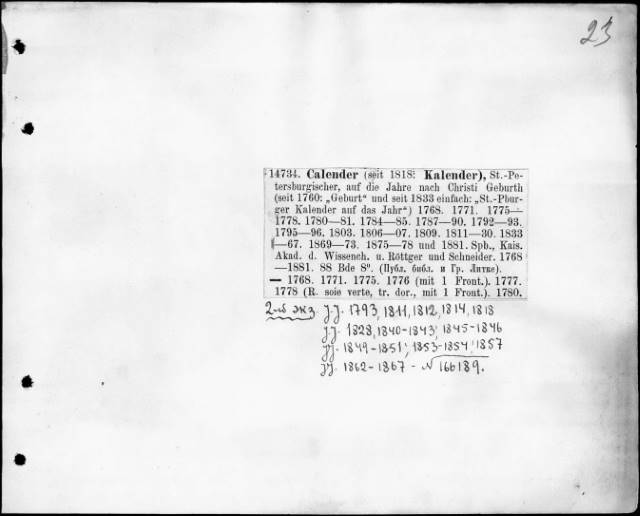 23
14734. Calender (seit 1818: Kalender), St.-Pe-
tersburgischer, auf die Jahre nach Christi Geburth
(seit 1760: „Geburt“ und seit 1833 einfach: „St.-Pbur-
ger Kalender auf das Jahr“) 1768. 1771. 1775—
1778. 1780—81. 1784—85. 1787—90. 1792—93.
1795—96. 1803. 1806—07. 1809. 1811—30. 1833
—67. 1869—73. 1875—78 und 1881. Spb., Kais.
Akad. d. Wissench. u. Röttger und Schneider. 1768
—1881. 88 Bde 8°. (Публ. библ. и Гр. Литке).
— 1768. 1771. 1775. 1776 (mit 1 Front.). 1777.
1778 (R. soie verte, tr. dor., mit 1 Front.). 1780.
2-ой экз. J.J. 1793, 1811, 1812, 1814, 1818
J.J. 1828, 1840-1843, 1845-1846
JJ. 1849-1851, 1853-1854, 1857
JJ. 1862-1867 - N 166189.